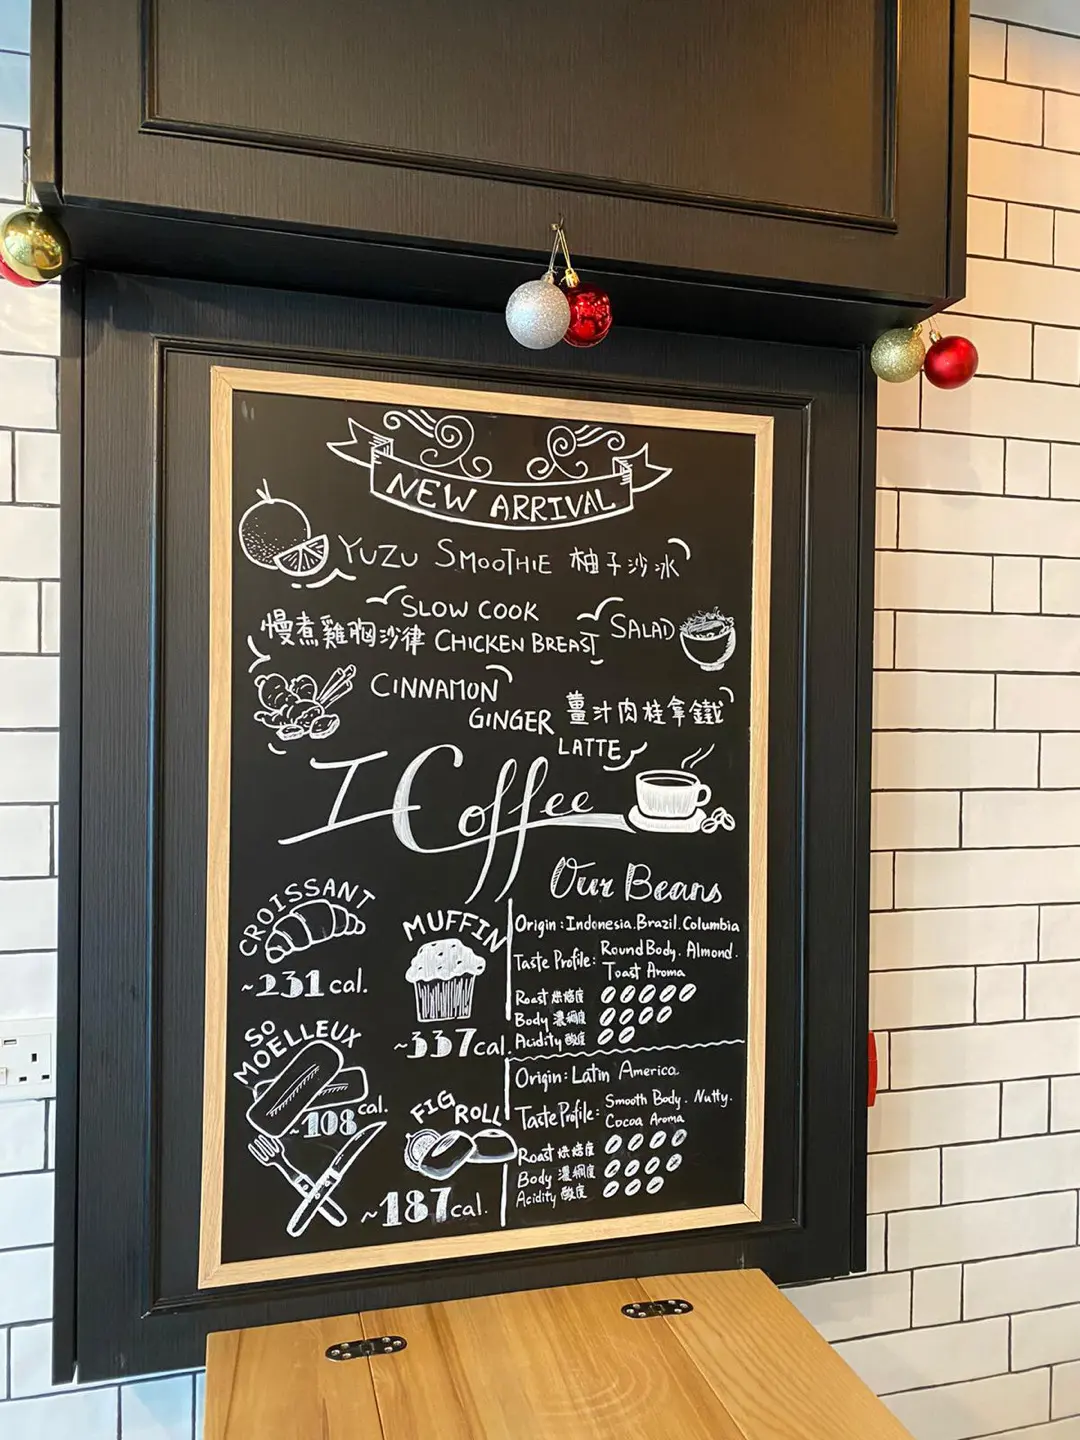 NEW ARRIVAL
YUZU SMOOTHIE 柚子沙冰
SLOW COOK
慢煮雞胸沙律 CHICKEN BREAST SALAD
CINNAMON
GINGER 薑汁肉桂拿鐵
LATTE
I Coffee
CROISSANT
~231 cal.
MUFFIN
~337 cal.
SO
MOELLEUX
~108 cal.
FIG
ROLL
~187 cal.
Our Beans
Origin: Indonesia. Brazil. Columbia
Taste Profile: Round Body. Almond.
Toast Aroma
Roast 烘焙度
Body 濃稠度
Acidity 酸度
Origin: Latin America
Taste Profile: Smooth Body. Nutty.
Cocoa Aroma
Roast 烘焙度
Body 濃稠度
Acidity 酸度